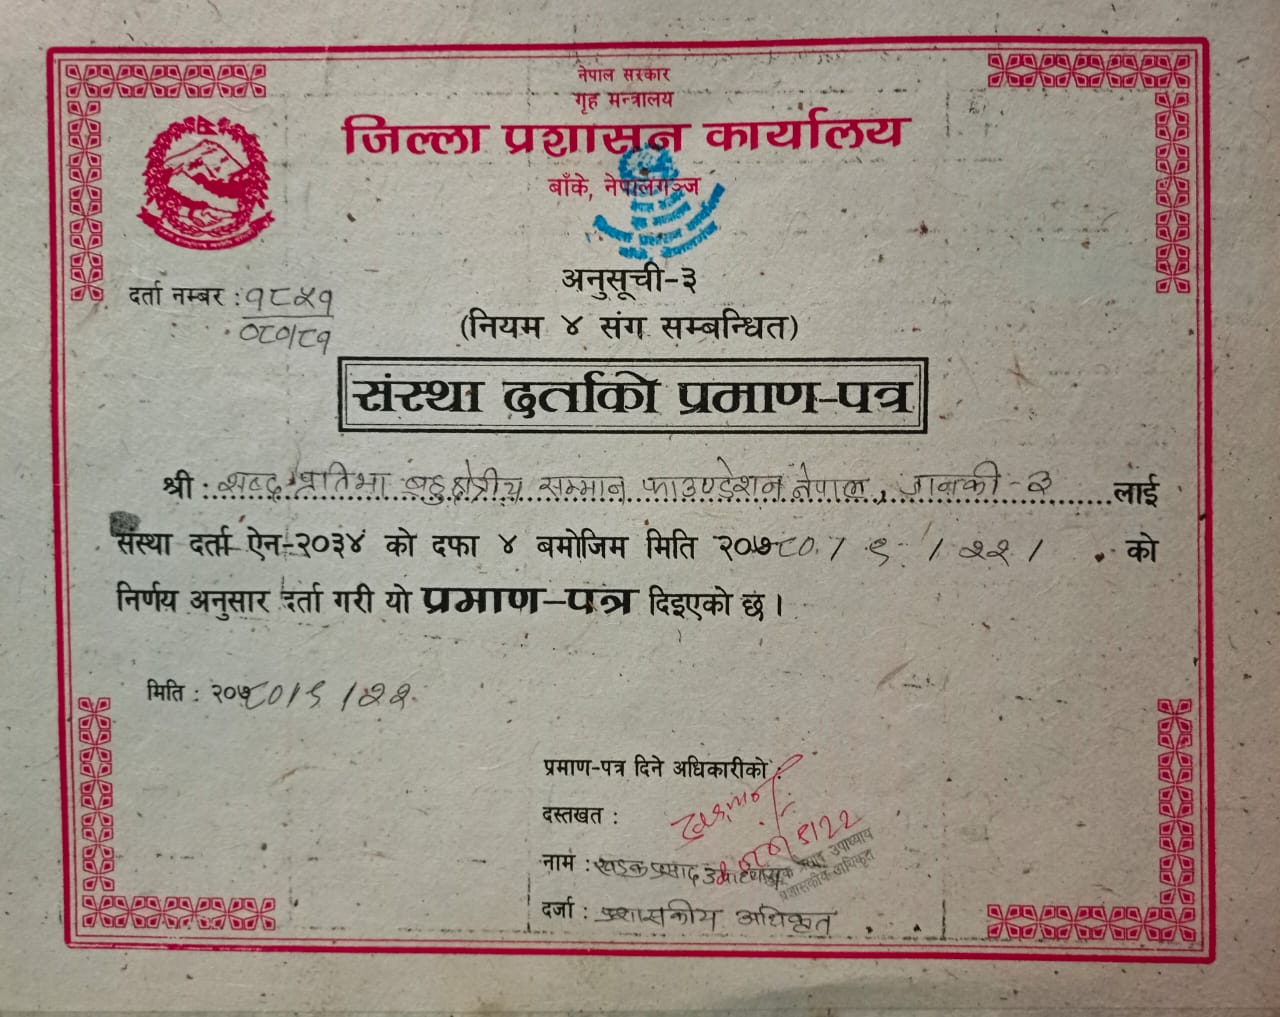 नेपाल सरकार
गृह मन्त्रालय
जिल्ला प्रशासन कार्यालय
बाँके, नेपालगञ्ज
अनुसूची-३
दर्ता नम्बर : १८५१
०८०/८१
(नियम ४ संग सम्बन्धित)
संस्था दर्ताको प्रमाण-पत्र
श्री : शब्द प्रतिभा बहुक्षेत्रीय सम्मान फाउण्डेशन नेपाल, जानकी - ३ लाई
संस्था दर्ता ऐन-२०३४ को दफा ४ बमोजिम मिति २०७८०।९।२२। को
निर्णय अनुसार दर्ता गरी यो प्रमाण-पत्र दिइएको छ।
मिति : २०७८०।९।२२
प्रमाण-पत्र दिने अधिकारीको :
दस्तखत :
नाम : खडक प्रसाद उपाध्याय
प्रसाद उपाध्याय
प्रशासकीय अधिकृत
दर्जा : प्रशासकीय अधिकृत